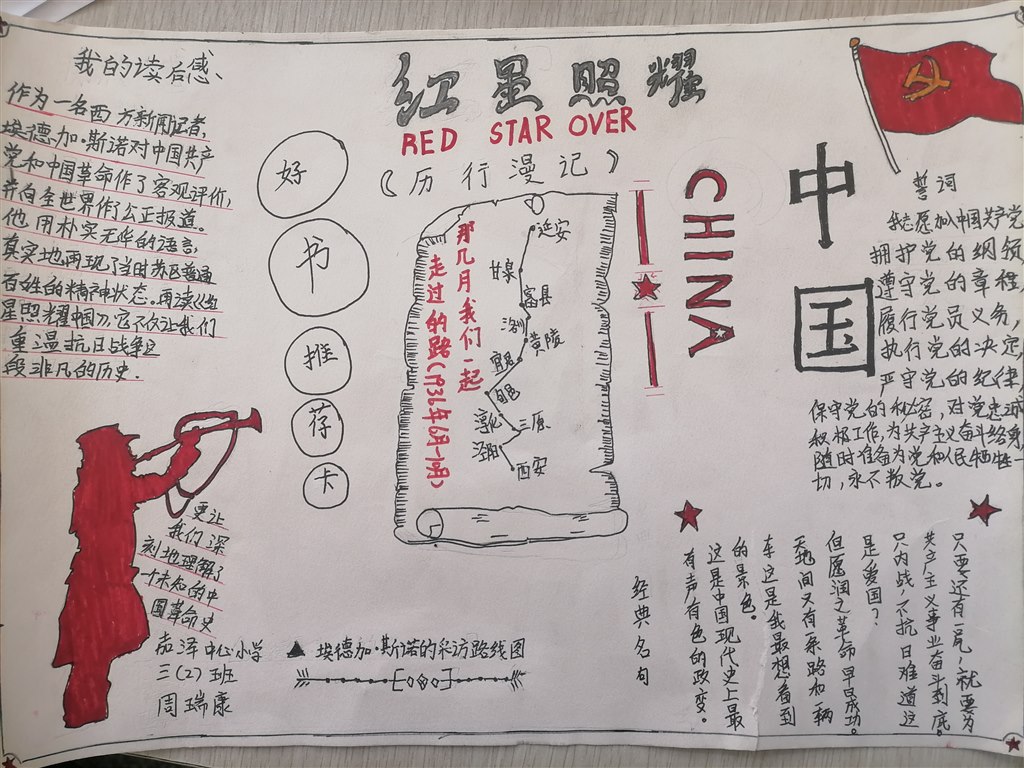 我的读后感
作为一名西方新闻记者,
埃德加·斯诺对中国共产
党和中国革命作了客观评价,
并向全世界作了公正报道。
他用朴实无华的语言,
真实地再现了当时苏区普通
百姓的精神状态。再读《红
星照耀中国》,它不仅让我们
重温抗日战争这
段非凡的历史.
更让
我们深
刻地理解了
个未知的中
国革命史
中心小学
三(2)班
周瑞康
好
书
推
荐
卡
红星照耀
RED STAR OVER
《历行漫记》
CHINA
中
国
那几月我们一起
走过的路(1936年6月-10月)
延安
甘泉
富县
洛川
黄陵
宜君
三原
泾阳
西安
▲ 埃德加·斯诺的采访路线图
誓词
我志愿加入中国共产党
拥护党的纲领
遵守党的章程,
履行党员义务,
执行党的决定,
严守党的纪律,
保守党的秘密,对党忠诚
积极工作,为共产主义奋斗终身
随时准备为党和人民牺牲一
切,永不叛党。
只要还有一兵,就要为
共产主义事业奋斗到底。
只内战,不抗日难道这
是爱国?
但愿润之革命早日成功。
天地间又有一条路和一辆
车这是我最想看到
的景色。
这是中国现代史上最
有声有色的政变。
经典名句